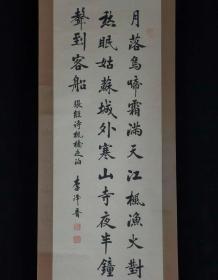 月落烏啼霜滿天江楓漁火對
愁眠姑蘇城外寒山寺夜半鐘
聲到客船
張繼诗枫橋夜泊 李泽晋